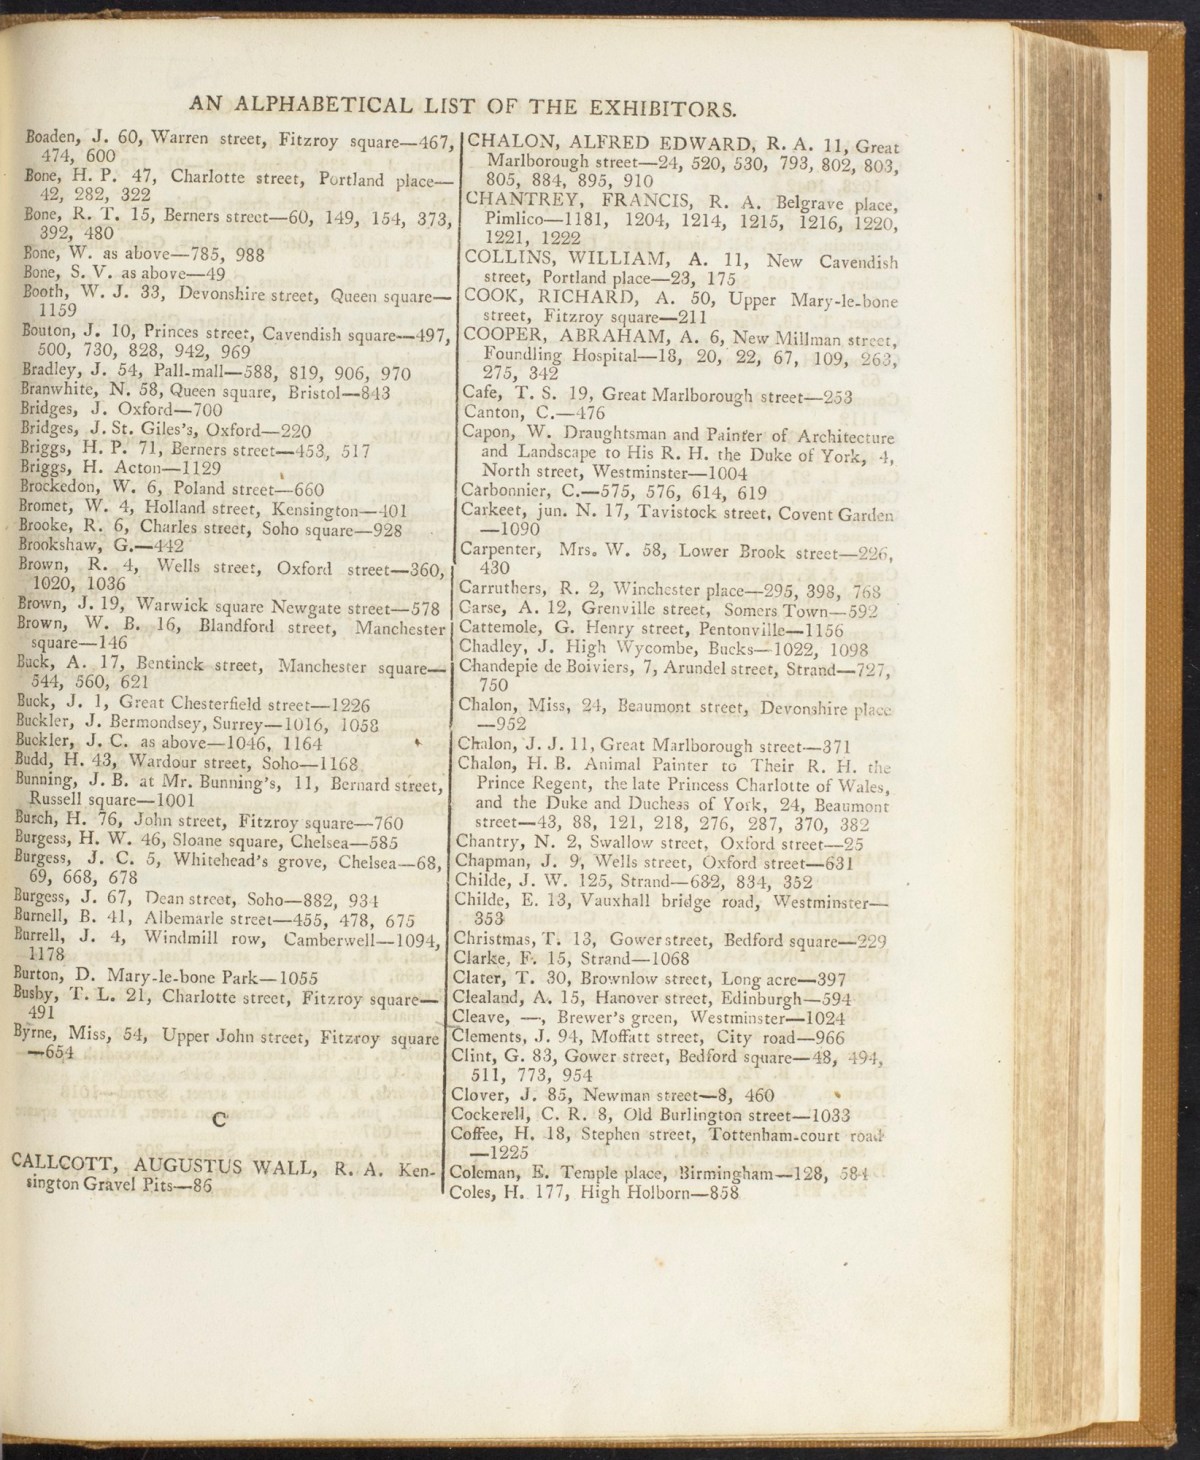 AN ALPHABETICAL LIST OF THE EXHIBITORS.
Boaden, J. 60, Warren street, Fitzroy square—467,
474, 600
Bone, H. P. 47, Charlotte street, Portland place—
42, 282, 322
Bone, R. T. 15, Berners street—60, 149, 154, 373,
392, 480
Bone, W. as above—785, 988
Bone, S. V. as above—49
Booth, W. J. 33, Devonshire street, Queen square—
1159
Bouton, J. 10, Princes street, Cavendish square—497,
500, 730, 828, 942, 969
Bradley, J. 54, Pall-mall—588, 819, 906, 970
Branwhite, N. 58, Queen square, Bristol—843
Bridges, J. Oxford—700
Bridges, J. St. Giles's, Oxford—220
Briggs, H. P. 71, Berners street—453, 517
Briggs, H. Acton—1129
Brockedon, W. 6, Poland street—660
Bromet, W. 4, Holland street, Kensington—401
Brooke, R. 6, Charles street, Soho square—928
Brookshaw, G.—442
Brown, R. 4, Wells street, Oxford street—360,
1020, 1036
Brown, J. 19, Warwick square Newgate street—578
Brown, W. B. 16, Blandford street, Manchester
square—146
Buck, A. 17, Bentinck street, Manchester square—
544, 560, 621
Buck, J. 1, Great Chesterfield street—1226
Buckler, J. Bermondsey, Surrey—1016, 1058
Buckler, J. C. as above—1046, 1164
Budd, H. 43, Wardour street, Soho—1168
Bunning, J. B. at Mr. Bunning's, 11, Bernard street,
Russell square—1001
Burch, H. 76, John street, Fitzroy square—760
Burgess, H. W. 46, Sloane square, Chelsea—585
Burgess, J. C. 5, Whitehead's grove, Chelsea—68,
69, 668, 678
Burgess, J. 67, Dean street, Soho—882, 934
Burnell, B. 41, Albemarle street—455, 478, 675
Burrell, J. 4, Windmill row, Camberwell—1094,
1178
Burton, D. Mary-le-bone Park—1055
Busby, T. L. 21, Charlotte street, Fitzroy square—
491
Byrne, Miss, 54, Upper John street, Fitzroy square
—654
C
CALLCOTT, AUGUSTUS WALL, R. A. Ken-
sington Gravel Pits—86
CHALON, ALFRED EDWARD, R. A. 11, Great
Marlborough street—24, 520, 530, 793, 802, 803,
805, 884, 895, 910
CHANTREY, FRANCIS, R. A. Belgrave place,
Pimlico—1181, 1204, 1214, 1215, 1216, 1220,
1221, 1222
COLLINS, WILLIAM, A. 11, New Cavendish
street, Portland place—23, 175
COOK, RICHARD, A. 50, Upper Mary-le-bone
street, Fitzroy square—211
COOPER, ABRAHAM, A. 6, New Millman street,
Foundling Hospital—18, 20, 22, 67, 109, 263,
275, 342
Cafe, T. S. 19, Great Marlborough street—253
Canton, C.—476
Capon, W. Draughtsman and Painter of Architecture
and Landscape to His R. H. the Duke of York, 4,
North street, Westminster—1004
Carbonnier, C.—575, 576, 614, 619
Carkeet, jun. N. 17, Tavistock street, Covent Garden
—1090
Carpenter, Mrs. W. 58, Lower Brook street—226,
430
Carruthers, R. 2, Winchester place—295, 398, 768
Carse, A. 12, Grenville street, Somers Town—592
Cattemole, G. Henry street, Pentonville—1156
Chadley, J. High Wycombe, Bucks—1022, 1098
Chandepie de Boiviers, 7, Arundel street, Strand—727,
750
Chalon, Miss, 24, Beaumont street, Devonshire place
—952
Chalon, J. J. 11, Great Marlborough street—371
Chalon, H. B. Animal Painter to Their R. H. the
Prince Regent, the late Princess Charlotte of Wales,
and the Duke and Duchess of York, 24, Beaumont
street—43, 88, 121, 218, 276, 287, 370, 382
Chantry, N. 2, Swallow street, Oxford street—25
Chapman, J. 9, Wells street, Oxford street—631
Childe, J. W. 125, Strand—682, 834, 352
Childe, E. 13, Vauxhall bridge road, Westminster—
353
Christmas, T. 13, Gower street, Bedford square—229
Clarke, F. 15, Strand—1068
Clater, T. 30, Brownlow street, Long acre—397
Clealand, A. 15, Hanover street, Edinburgh—594
Cleave, —, Brewer's green, Westminster—1024
Clements, J. 94, Moffatt street, City road—966
Clint, G. 83, Gower street, Bedford square—48, 494,
511, 773, 954
Clover, J. 85, Newman street—8, 460
Cockerell, C. R. 8, Old Burlington street—1033
Coffee, H. 18, Stephen street, Tottenham-court road
—1225
Coleman, E. Temple place, Birmingham—128, 584
Coles, H. 177, High Holborn—858